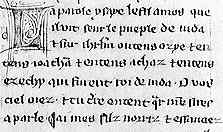 La parole ysaye le fil amos que
il vit seur le pueple de iuda
⁊ sur ihrlm ou tens ozye ⁊ ou
tens ioatha ⁊ en tens achaz ⁊ en tens
ezechy qui furent roi de iuda. O vos
ciel oiez. ⁊ tu terre entent qr nr̃e sires
a parle. Iai mes filz norriz ⁊ essaucez